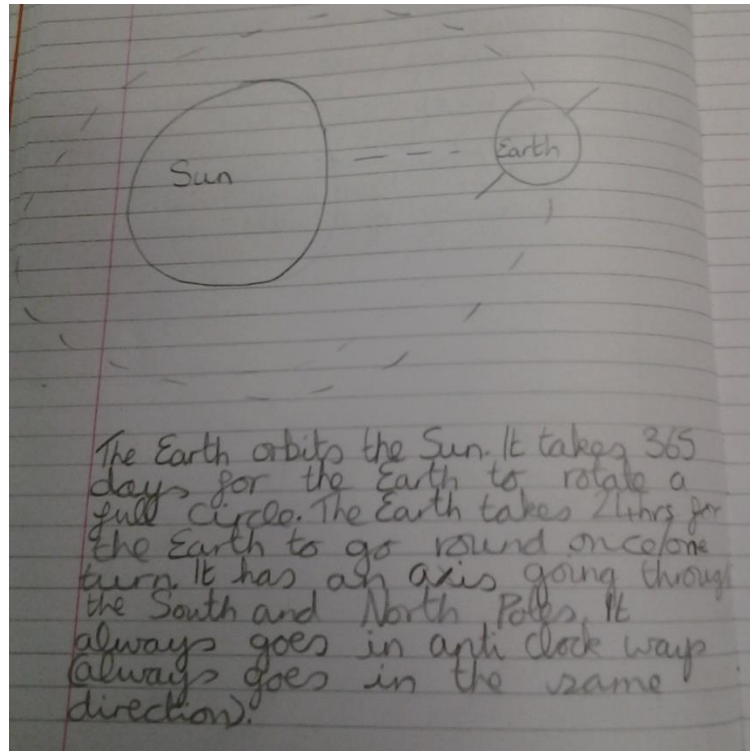 Sun
Earth
The Earth orbits the Sun. It takes 365
days for the Earth to rotate a
full circle. The Earth takes 24hrs for
the Earth to go round once/one
turn. It has an axis going through
the South and North Poles. It
always goes in anti clock ways
(always goes in the same
direction).